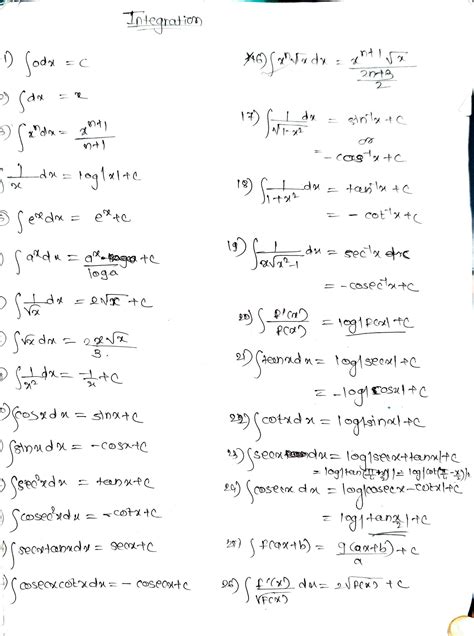 Integration
1) ∫0dx = c
2) ∫dx = x
3) ∫xⁿdx = xⁿ⁺¹/n+1
∫1/x dx = log|x|+c
5) ∫eˣdx = eˣ+c
) ∫aˣdx = aˣ/loga +c
) ∫1/√x dx = 2√x + c
∫√x dx = 2x√x/3
∫1/x² dx = -1/x + c
) ∫cosxdx = sinx+c
) ∫sinxdx = -cosx+c
) ∫sec²xdx = tanx+c
) ∫cosec²xdx = -cotx+c
) ∫secxtanxdx = secx+c
) ∫cosecxcotxdx = -cosecx+c
16) ∫xⁿ√x dx = xⁿ⁺¹√x / 2n+3/2
17) ∫1/√1-x² dx = sin⁻¹x+c
or
= -cos⁻¹x+c
18) ∫1/1+x² dx = tan⁻¹x+c
= -cot⁻¹x+c
19) ∫1/x√x²-1 dx = sec⁻¹x+c
= -cosec⁻¹x+c
20) ∫f'(x)/f(x) = log|f(x)|+c
21) ∫tanxdx = log|secx|+c
= -log|cosx|+c
22) ∫cotxdx = log|sinx|+c
23) ∫secxdx = log|secx+tanx|+c
= log|tan(π/4+x/2)| = log|cot(π/4-x/2)|
24) ∫cosecx dx = log|cosecx-cotx|+c
= log|tanx/2|+c
25) ∫f(ax+b) = g(ax+b)/a +c
26) ∫f'(x)/√f(x) dx = 2√f(x) +c